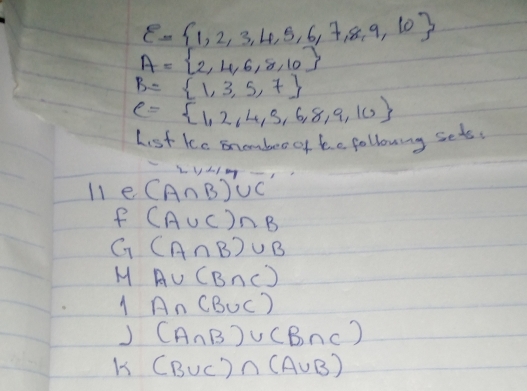 ε = {1, 2, 3, 4, 5, 6, 7, 8, 9, 10}
A = {2, 4, 6, 8, 10}
B = {1, 3, 5, 7}
C = {1, 2, 4, 5, 6, 8, 9, 10}
List the member of the following sets:
11 e (A∩B)∪C
f (A∪C)∩B
G (A∩B)∪B
H A∪(B∩C)
1 A∩(B∪C)
J (A∩B)∪(B∩C)
K (B∪C)∩(A∪B)